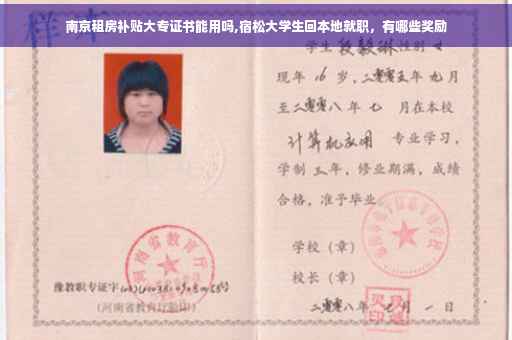 南京租房补贴大专证书能用吗,宿松大学生回本地就职，有哪些奖励
样本
学生段毅琳性别女
现年16岁，二零零五年九月
至二零零八年七月在本校
计算机应用专业学习，
学制三年，修业期满，成绩
合格，准予毕业。
学校（章）
校长（章）
河南省教育厅
豫教职专证字
（河南省教育厅验印）
二零零八年七月一日